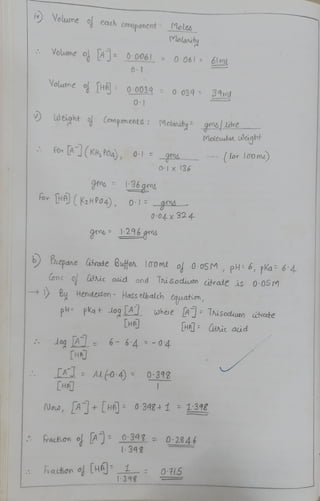 iv) Volume of each component = Moles
Molarity
∴ Volume of [A⁻] = 0.0061 = 0.061 = 61ml
0.1
Volume of [HA] = 0.0039 = 0.039 = 39ml
0.1
v) Weight of Components : Molarity = gms/litre
Molecular Weight
∴ For [A⁻] (KH₂PO₄), 0.1 = gms ---- (for 100ml)
0.1 x 136
gms = 1.36 gms
For [HA] (K₂HPO₄), 0.1 = gms
0.04 x 324
gms = 1.296 gms
b) Prepare Citrate Buffer 100ml of 0.05M, pH = 6, pKa = 6.4
Conc of Citric acid and Trisodium citrate is 0.05M
→ i) By Henderson - Hasselbalch equation,
pH = pKa + log [A⁻] where [A⁻] = Trisodium citrate
[HA] [HA] = Citric acid
∴ log [A⁻] = 6 - 6.4 = -0.4
[HA]
∴ [A⁻] = AL(-0.4) = 0.398
[HA] 1
Now, [A⁻] + [HA] = 0.398 + 1 = 1.398
∴ Fraction of [A⁻] = 0.398 = 0.2846
1.398
∴ Fraction of [HA] = 1 = 0.715
1.398